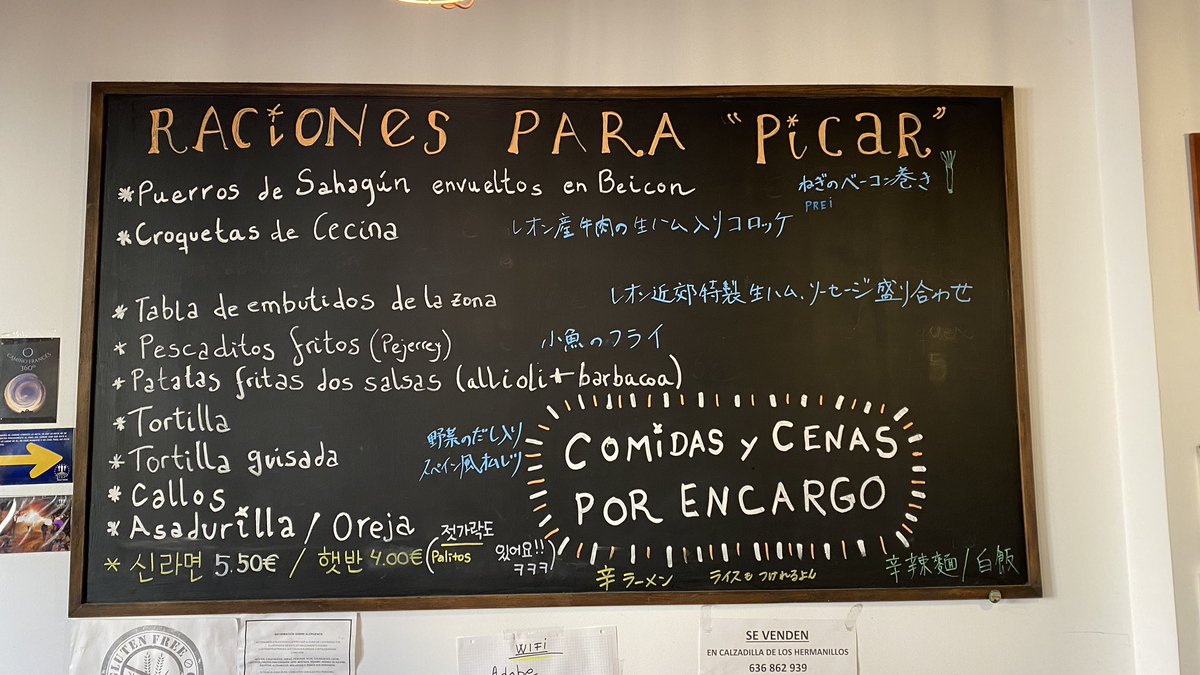 RACiONes PARA "PicaR"
*Puerros de Sahagún envueltos en Beicon ねぎのベーコン巻き
PREi
*Croquetas de Cecina レオン産牛肉の生ハム入りコロッケ
*Tabla de embutidos de la zona レオン近郊特製生ハム、ソーセージ盛り合わせ
* Pescaditos fritos (Pejerrey) 小魚のフライ
*Patatas fritas dos salsas (allioli + barbacoa)
*Tortilla
*Tortilla guisada 野菜のだし入り
スペイン風
*Callos
*Asadurilla / Oreja
COMiDAS y CENAS
POR ENCARGO
* 신라면 5.50€ / 햇반 4.00€ (젓가락도
Palitos
있어요!!
ㅋㅋㅋ)
辛ラーメン ライスもつけれるよん 辛辣麵/白飯
CAMINO FRANCÉS
360º
GLUTEN FREE
WIFI
Adobe
SE VENDEN
EN CALZADILLA DE LOS HERMANILLOS
636 862 939